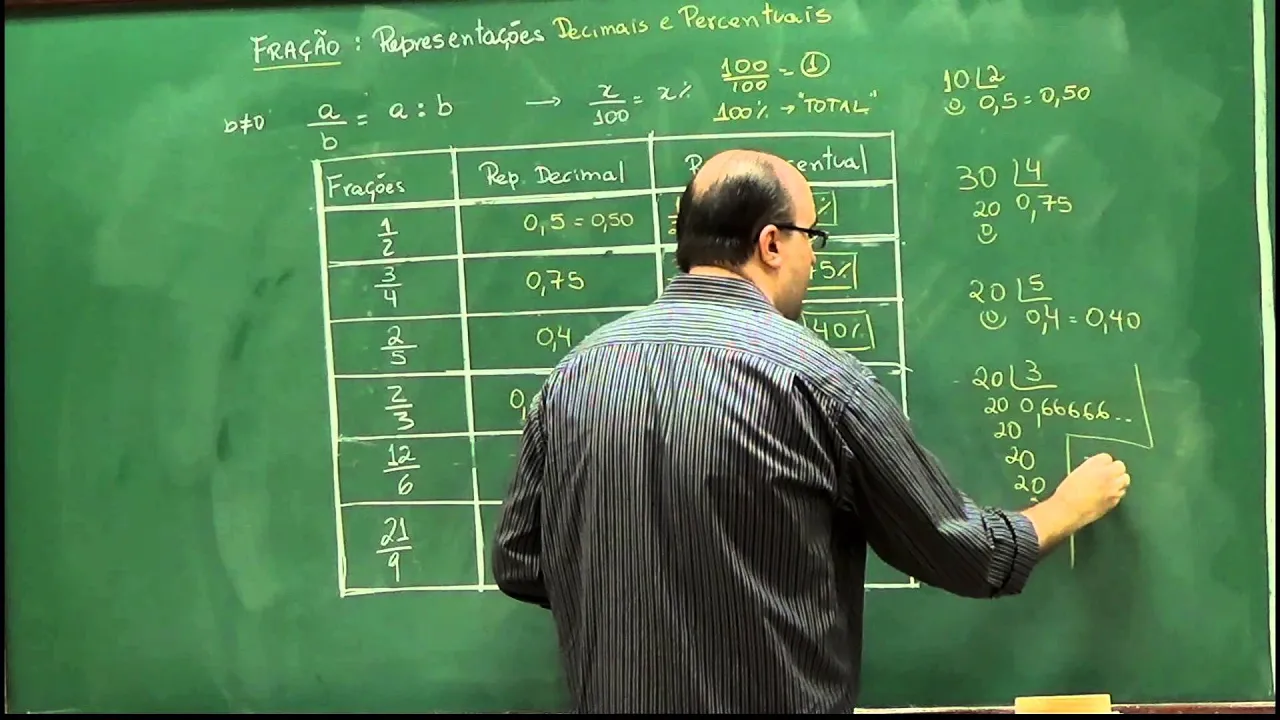 FRAÇÃO : Representações Decimais e Percentuais
b≠0 a/b = a : b → x/100 = x%
100/100 = 1
100% → "TOTAL"
Frações Rep. Decimal
1/2 0,5 = 0,50 %
3/4 0,75 75%
2/5 0,4 40%
2/3 0,
12/6
21/9
10 2
0 0,5 = 0,50
30 4
20 0,75
0
20 5
0 0,4 = 0,40
20 3
20 0,66666...
20
20
20